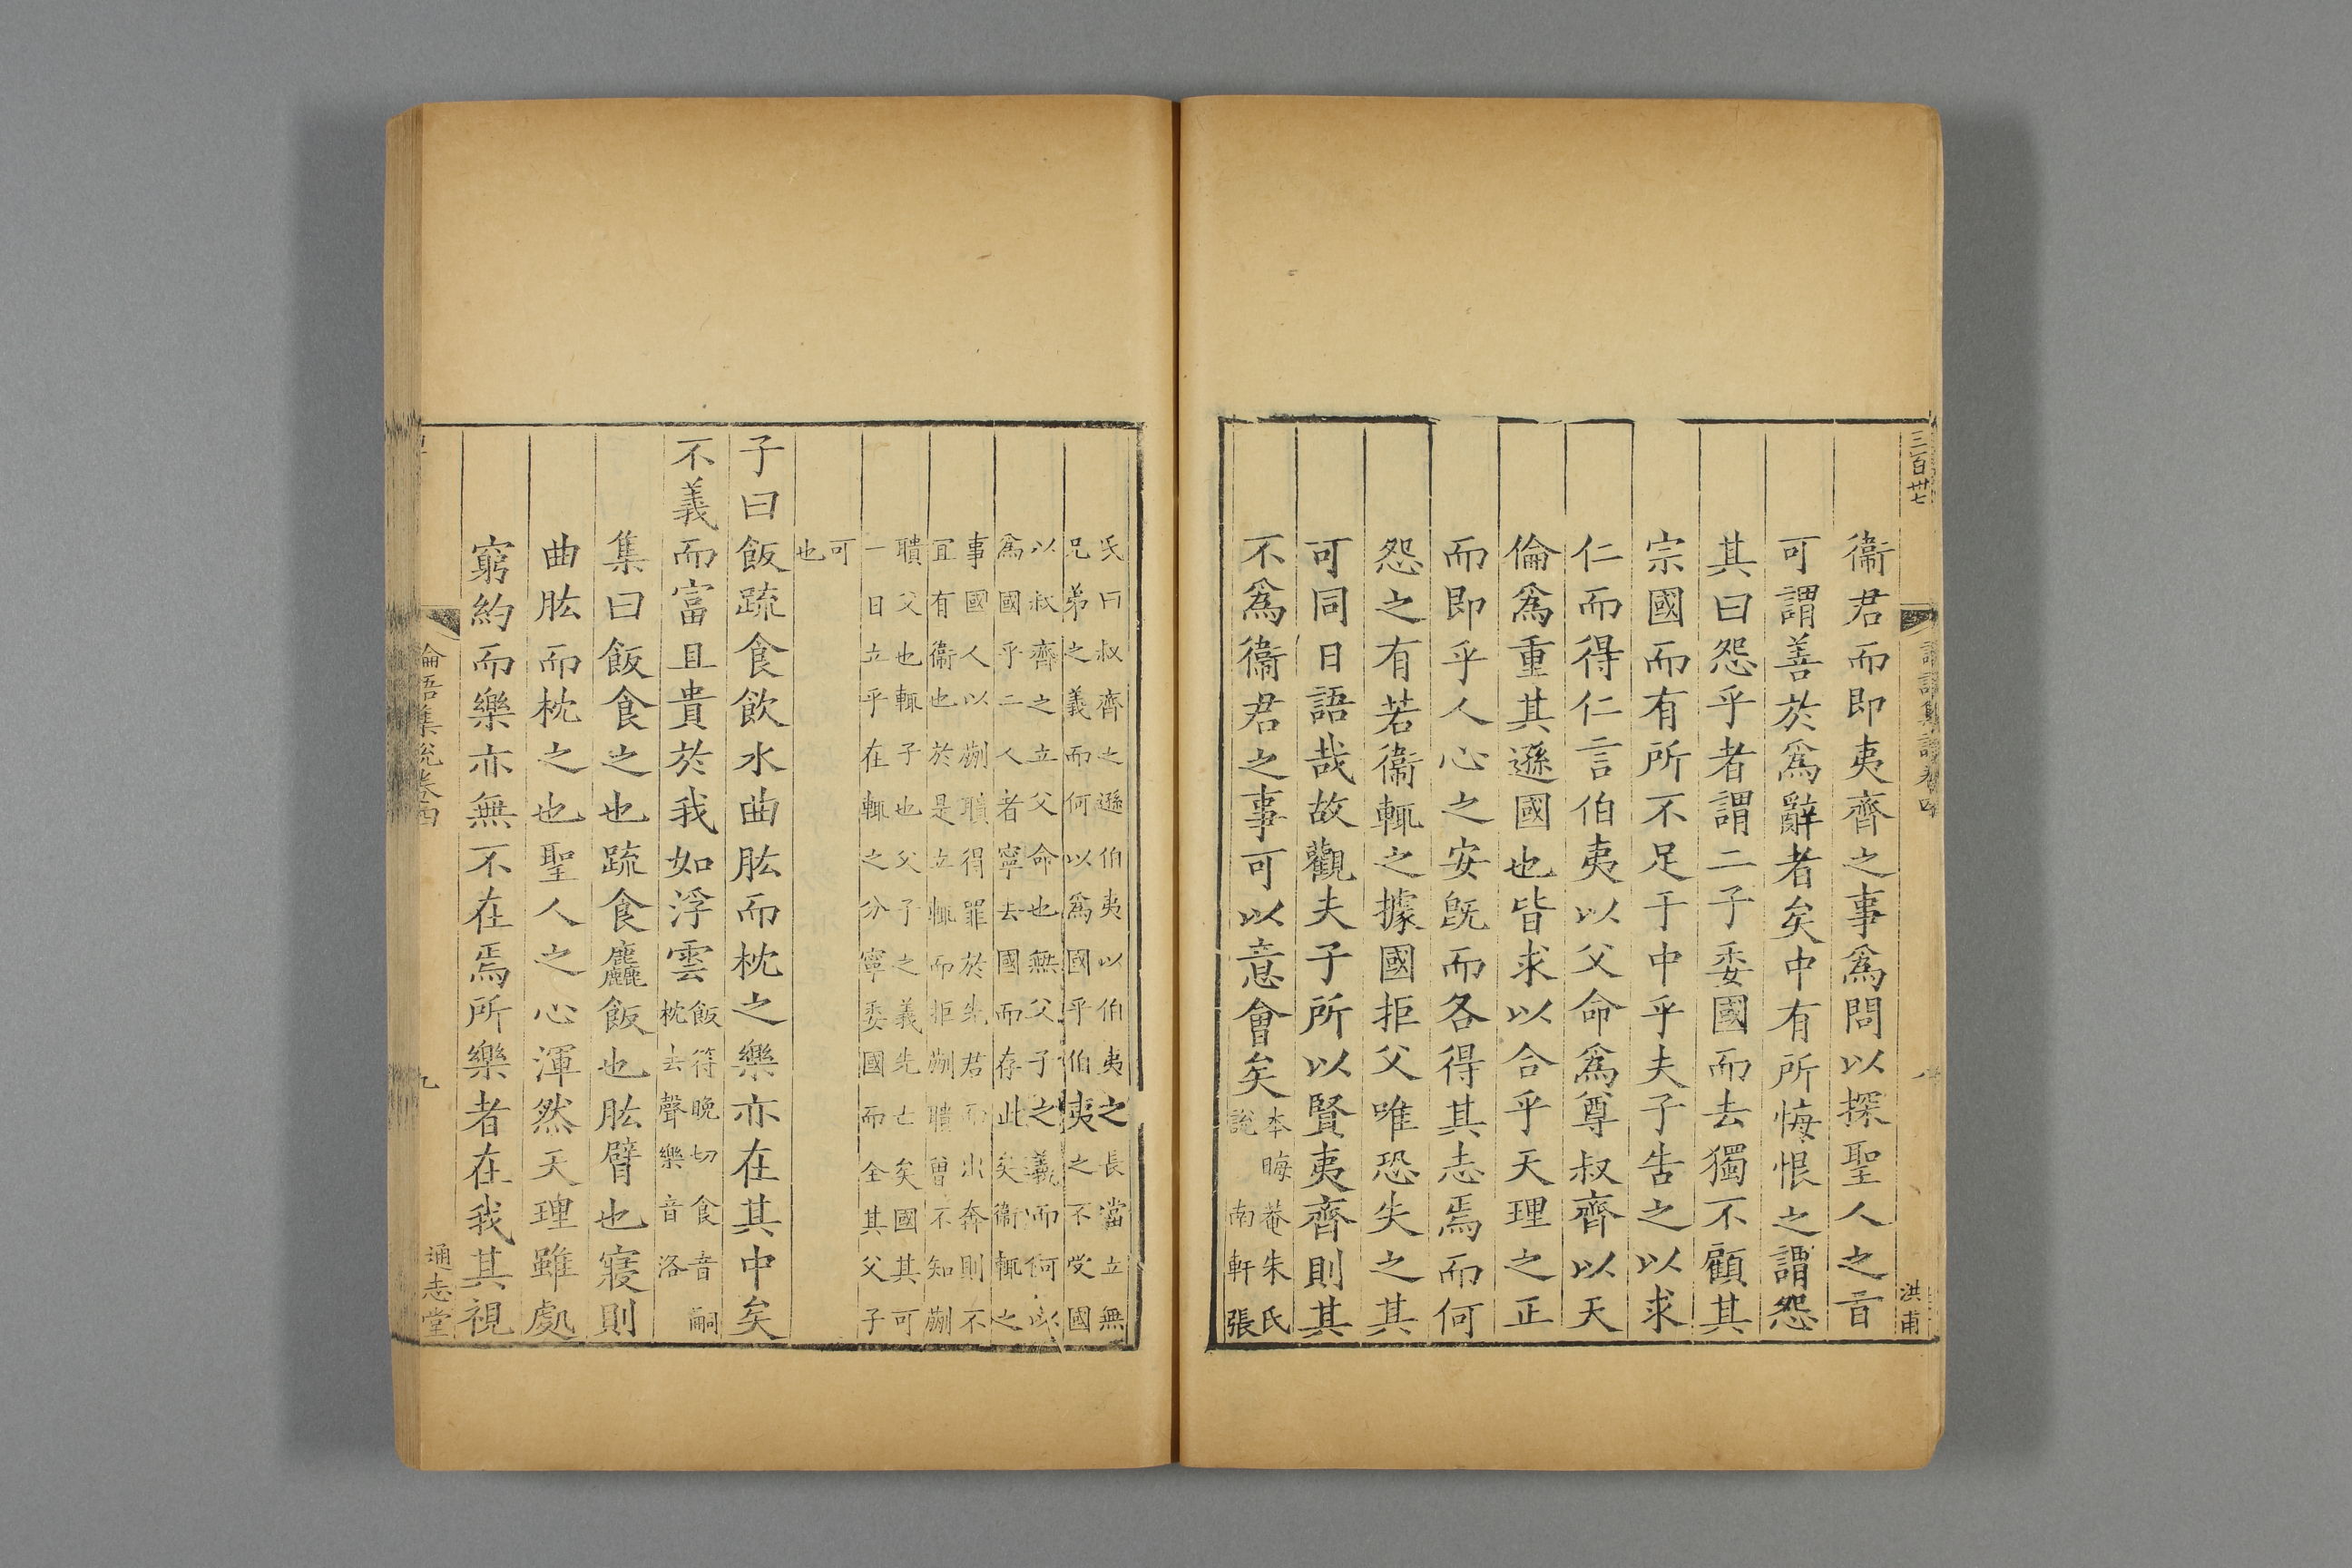 三百卅七
洪甫
衞君而即夷齊之事爲問以探聖人之言
可謂善於爲辭者矣中有所悔恨之謂怨
其曰怨乎者謂二子委國而去獨不顧其
宗國而有所不足于中乎夫子告之以求
仁而得仁言伯夷以父命爲尊叔齊以天
倫爲重其遜國也皆求以合乎天理之正
而即乎人心之安旣而各得其志焉而何
怨之有若衞輒之據國拒父唯恐失之其
可同日語哉故觀夫子所以賢夷齊則其
不爲衞君之事可以意會矣
本晦菴朱氏
說 南軒張
氏曰叔齊之遜伯夷以伯夷之長當立無
兄弟之義而何以爲國乎伯夷之不受國
以叔齊之立父命也無父子之義而何以
爲國乎二人者寧去國而存此矣衞輒之
事國人以蒯聵得罪於先君而出奔則不
宜有衞也於是立輒而拒蒯聵曾不知蒯
聵父也輒子也父子之義先亡矣國其可
一日立乎在輒之分寧委國而全其父子
可
也
子曰飯疏食飲水曲肱而枕之樂亦在其中矣
不義而富且貴於我如浮雲
飯符晚切 食音嗣
枕去聲樂音洛
集曰飯食之也疏食麤飯也肱臂也寢則
曲肱而枕之也聖人之心渾然天理雖處
窮約而樂亦無不在焉所樂者在我其視
論語集説卷四
九
通志堂